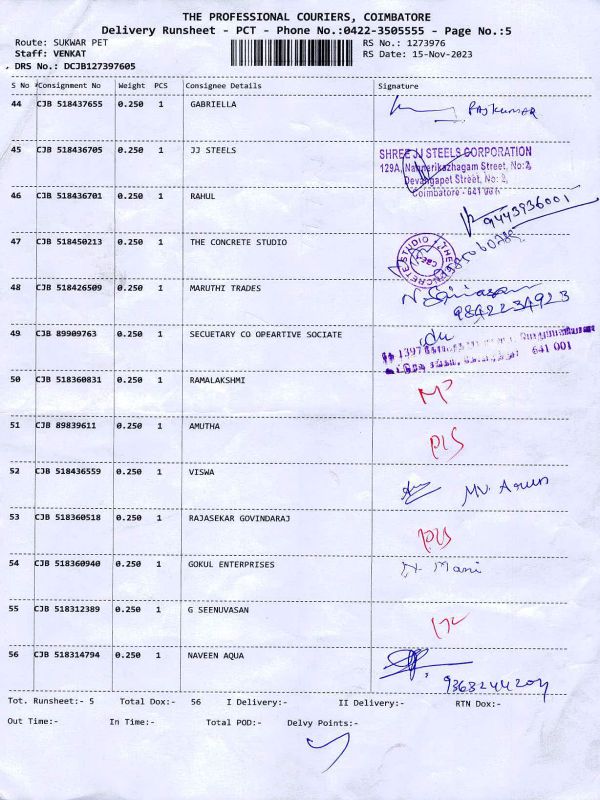 THE PROFESSIONAL COURIERS, COIMBATORE
Delivery Runsheet - PCT - Phone No.:0422-3505555 - Page No.:5
Route: SUKWAR PET RS No.: 1273976
Staff: VENKAT RS Date: 15-Nov-2023
DRS No.: DCJB127397605
S No Consignment No Weight PCS Consignee Details Signature
44 CJB 518437655 0.250 1 GABRIELLA RAJKUMAR
45 CJB 518436705 0.250 1 JJ STEELS
SHREE JJ STEELS CORPORATION
129A, Street, No:2,
Devangapet Street, No: 2,
Coimbatore - 641 001
46 CJB 518436701 0.250 1 RAHUL
9443936001
47 CJB 518450213 0.250 1 THE CONCRETE STUDIO
THE CONCRETE STUDIO
CBE
48 CJB 518426509 0.250 1 MARUTHI TRADES
9842234923
49 CJB 89909763 0.250 1 SECUETARY CO OPEARTIVE SOCIATE
1397
641 001
50 CJB 518360831 0.250 1 RAMALAKSHMI
51 CJB 89839611 0.250 1 AMUTHA
52 CJB 518436559 0.250 1 VISWA MV. Arun
53 CJB 518360518 0.250 1 RAJASEKAR GOVINDARAJ
54 CJB 518360940 0.250 1 GOKUL ENTERPRISES Mani
55 CJB 518312389 0.250 1 G SEENUVASAN
56 CJB 518314794 0.250 1 NAVEEN AQUA
Tot. Runsheet:- 5 Total Dox:- 56 I Delivery:- II Delivery:- RTN Dox:-
Out Time:- In Time:- Total POD:- Delvy Points:-